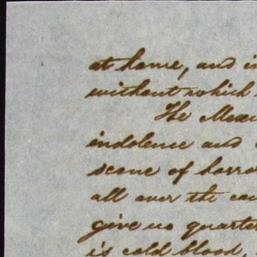 at home, and in
without which
The Mexi
indolence and
scene of horro
all over the cou
give no quarter
is cold blood,